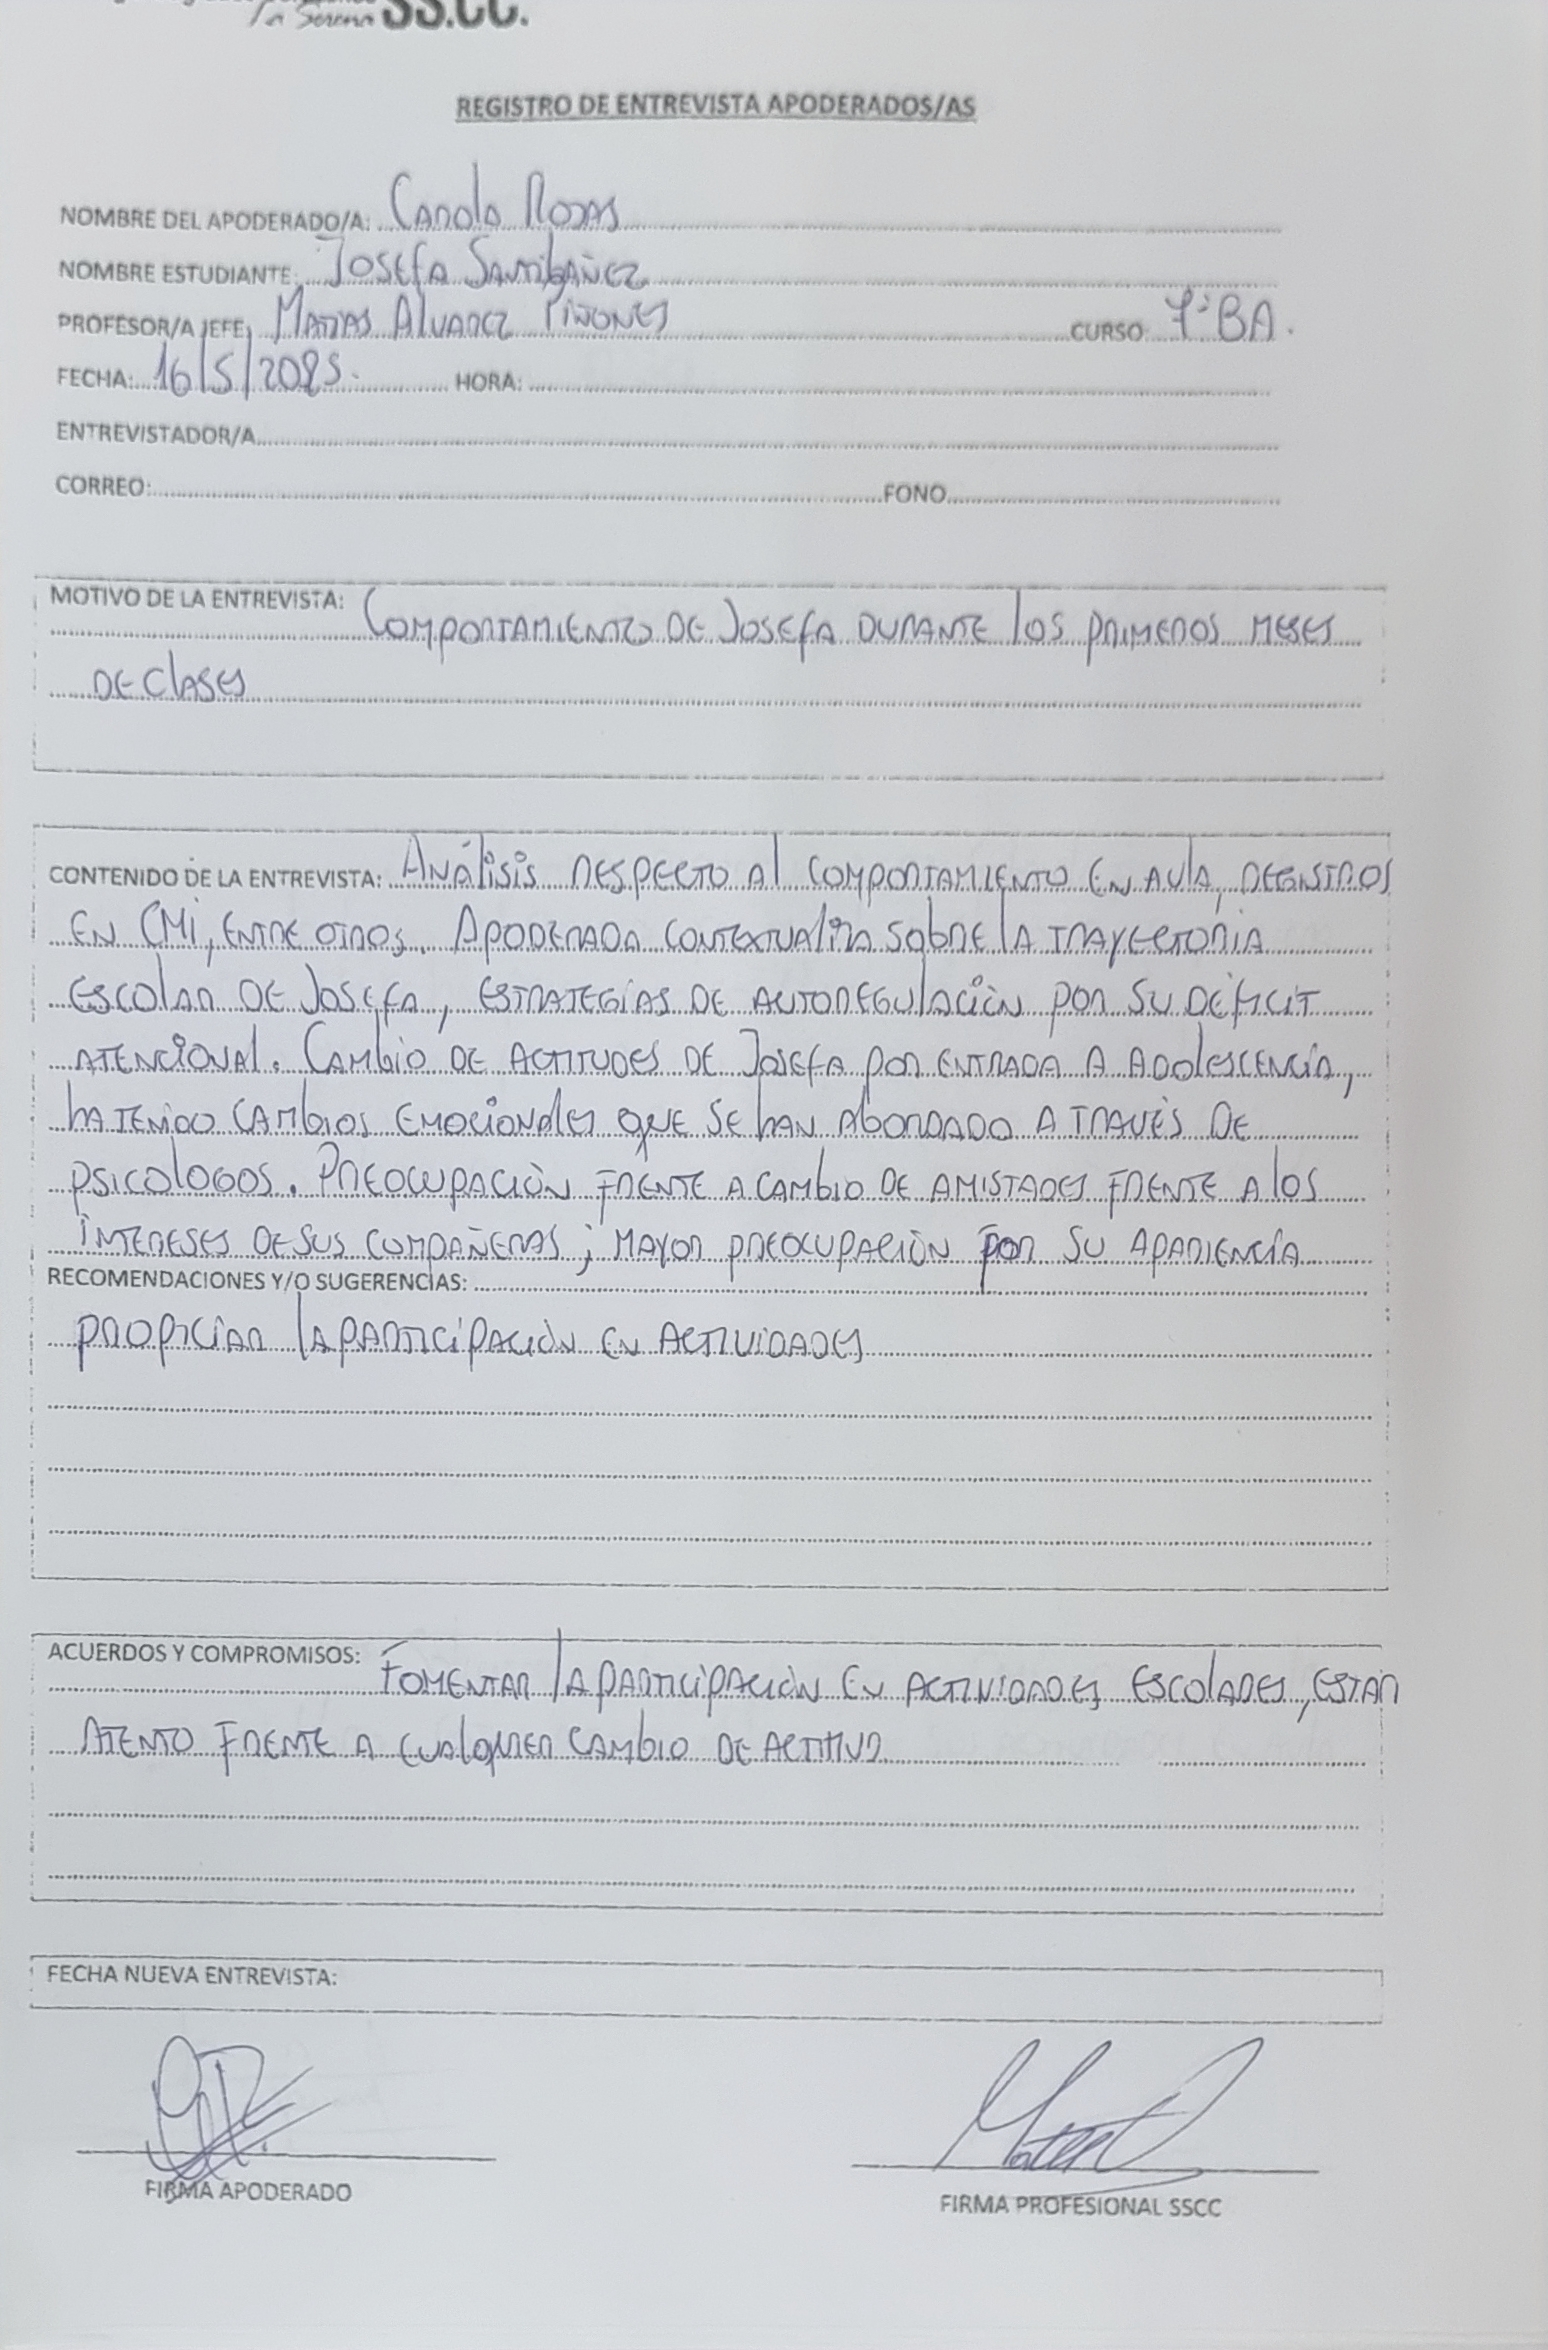 La Serena SS.CC.
REGISTRO DE ENTREVISTA APODERADOS/AS
NOMBRE DEL APODERADO/A: Carola Rojas
NOMBRE ESTUDIANTE: Josefa Santibañez
PROFESOR/A JEFE: Matias Alvarez Piñones CURSO: 7°BA.
FECHA: 16/5/2025. HORA:
ENTREVISTADOR/A
CORREO: FONO
MOTIVO DE LA ENTREVISTA: Comportamiento de Josefa durante los primeros meses
de clases
CONTENIDO DE LA ENTREVISTA: Análisis respecto al comportamiento en aula, registros
en CMI, entre otros. Apoderada contextualiza sobre la trayectoria
escolar de Josefa, estrategias de autoregulación por su déficit
atencional. Cambio de actitudes de Josefa por entrada a adolescencia,
ha tenido cambios emocionales que se han abordado a través de
psicologos. Preocupación frente a cambio de amistades frente a los
intereses de sus compañeras; mayor preocupación por su apariencia
RECOMENDACIONES Y/O SUGERENCIAS:
propiciar la participación en actividades
ACUERDOS Y COMPROMISOS: Fomentar la participación en actividades escolares, estar
atento frente a cualquier cambio de actitud
FECHA NUEVA ENTREVISTA:
FIRMA APODERADO
FIRMA PROFESIONAL SSCC